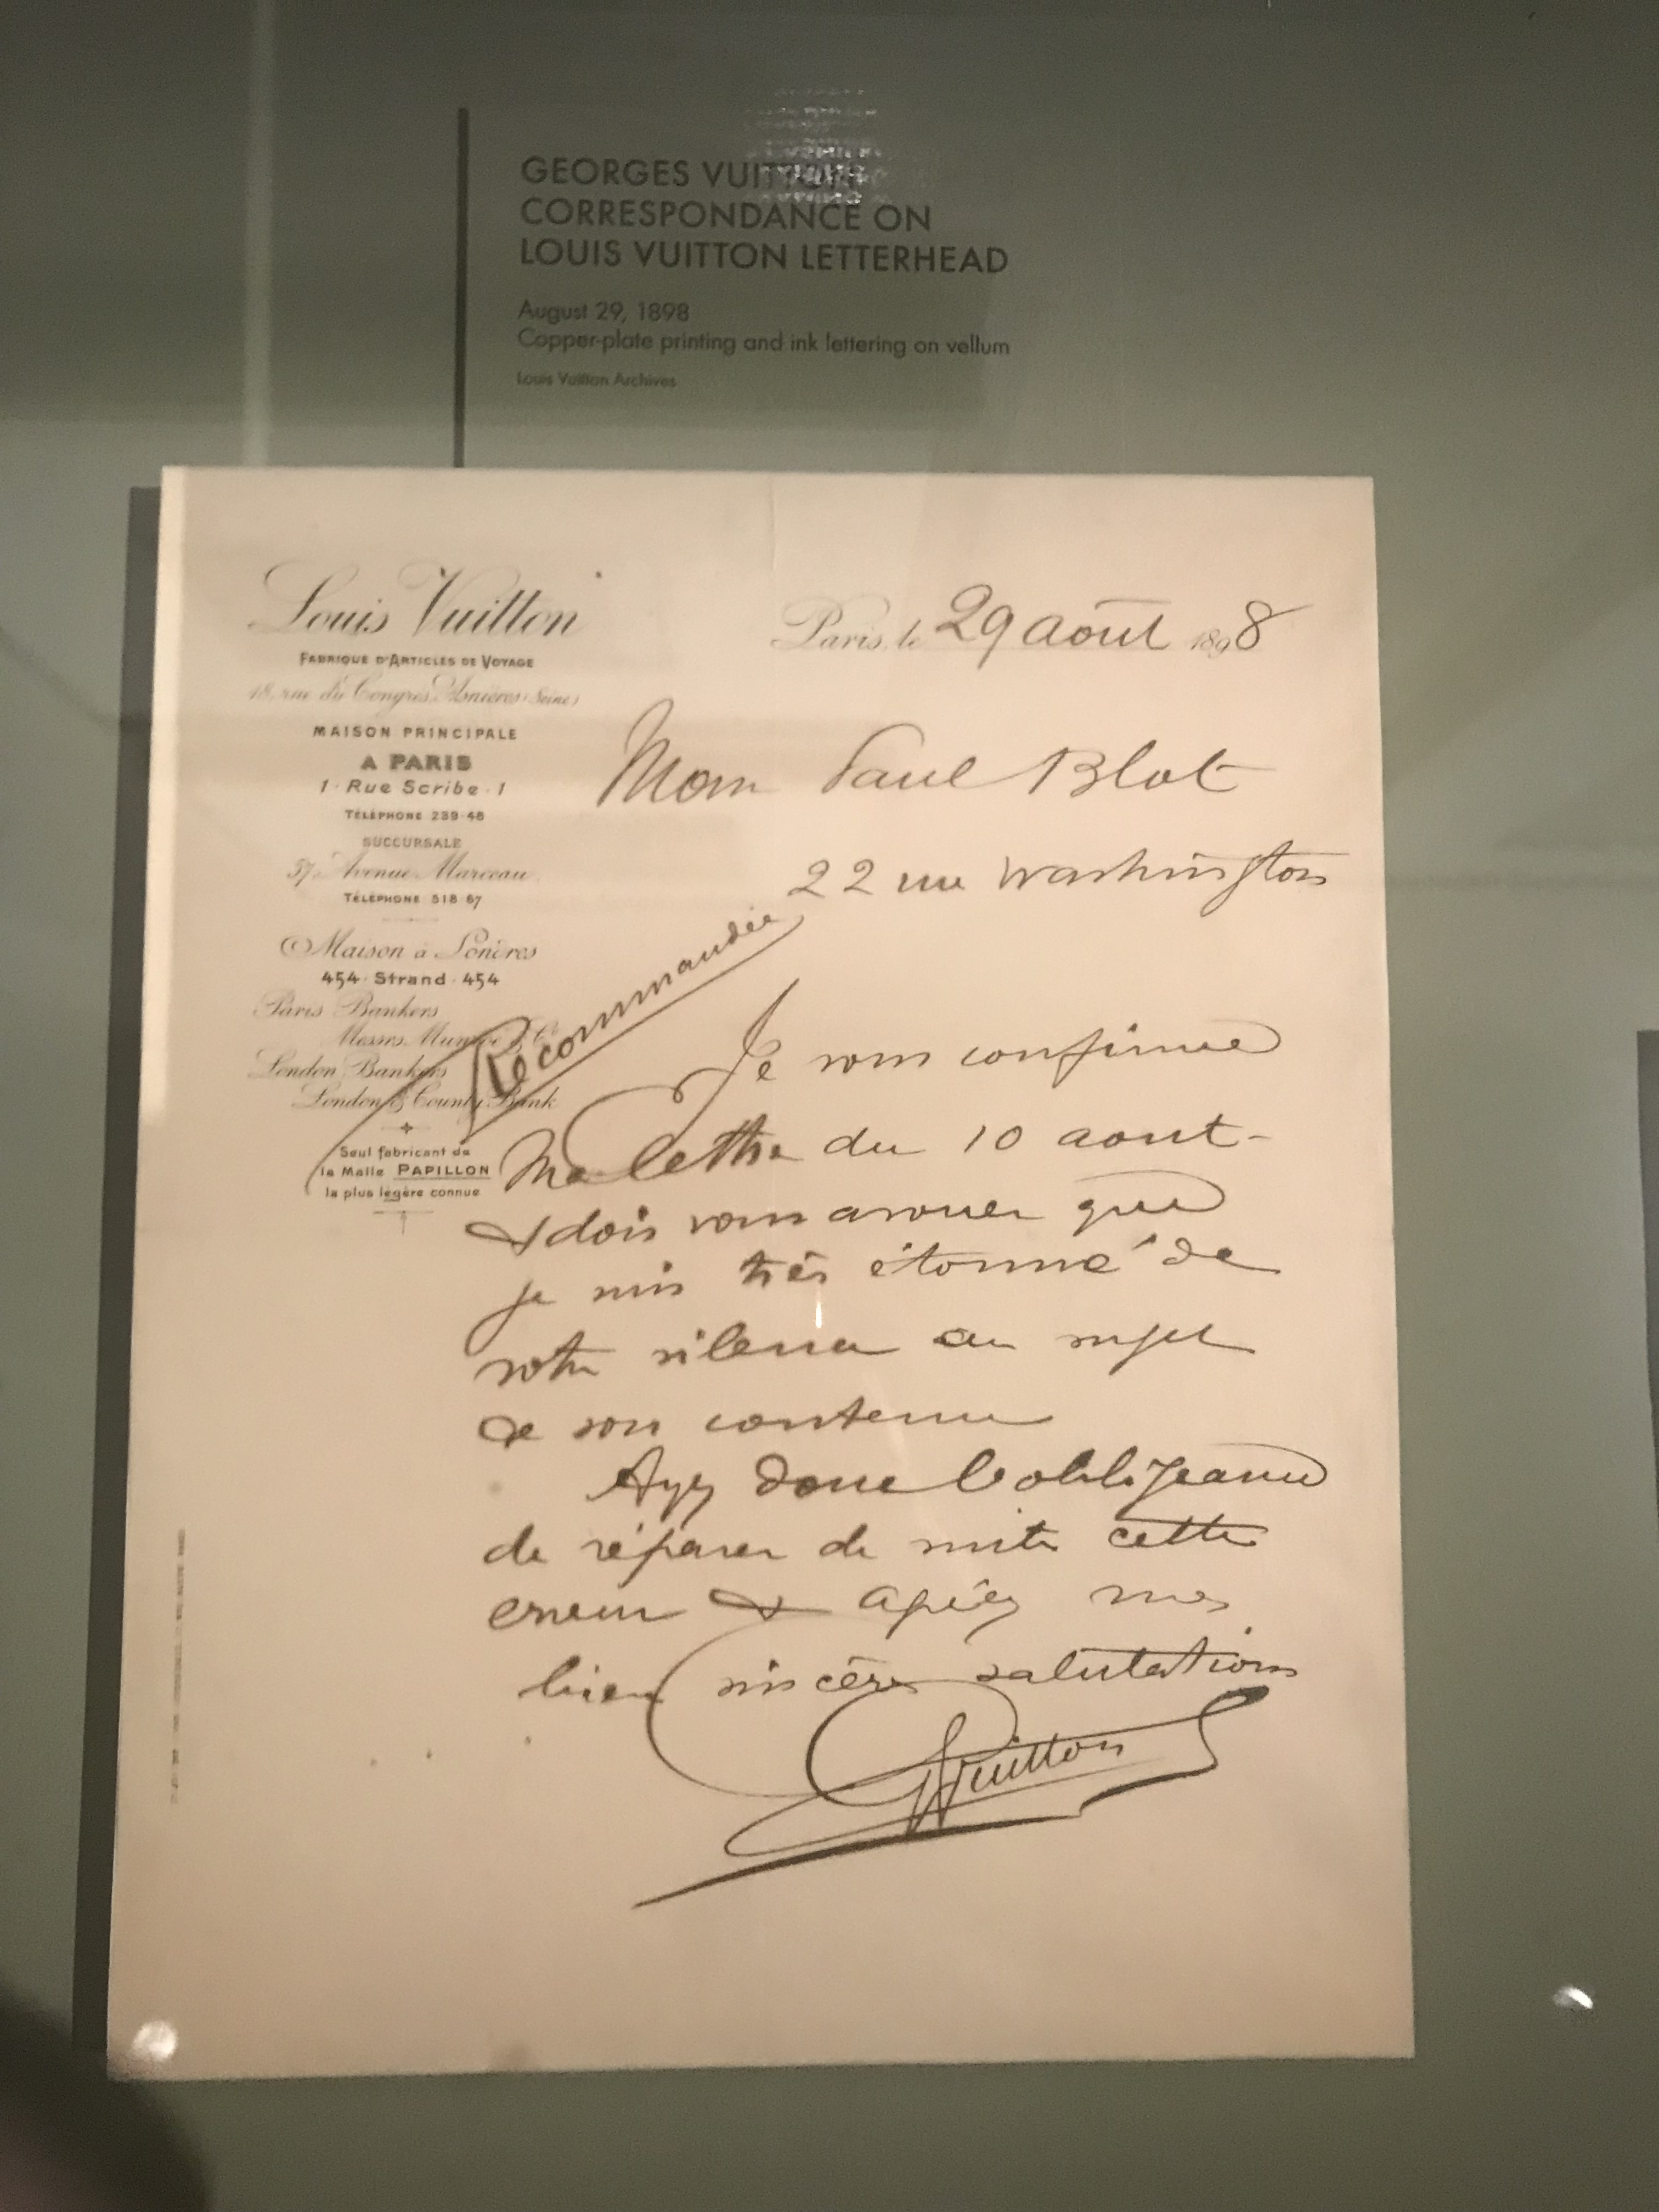 GEORGES VUITTON
CORRESPONDANCE ON
LOUIS VUITTON LETTERHEAD
August 29, 1898
Copper-plate printing and ink lettering on vellum
Louis Vuitton Archives
Louis Vuitton
FABRIQUE D'ARTICLES DE VOYAGE
18, rue du Congrès Asnières (Seine)
MAISON PRINCIPALE
A PARIS
1 · Rue Scribe · 1
TÉLÉPHONE 239·48
SUCCURSALE
57, Avenue Marceau
TÉLÉPHONE 518·67
Maison à Londres
454 · Strand · 454
Paris Bankers
Messrs. Munroe & Co
London Bankers
London & County Bank
Seul fabricant de
la Malle PAPILLON
la plus légère connue
Paris, le 29 août 1898
Paul Blot
22 rue Washington
Recommandée
Je vous confirme
Ma lettre du 10 aout
& dois vous avouer que
je suis très étonné de
votre silence au sujet
de son contenu
Ayez donc l'obligeance
de réparer de suite cette
erreur & agréez mes
bien sincères salutations
GVuitton